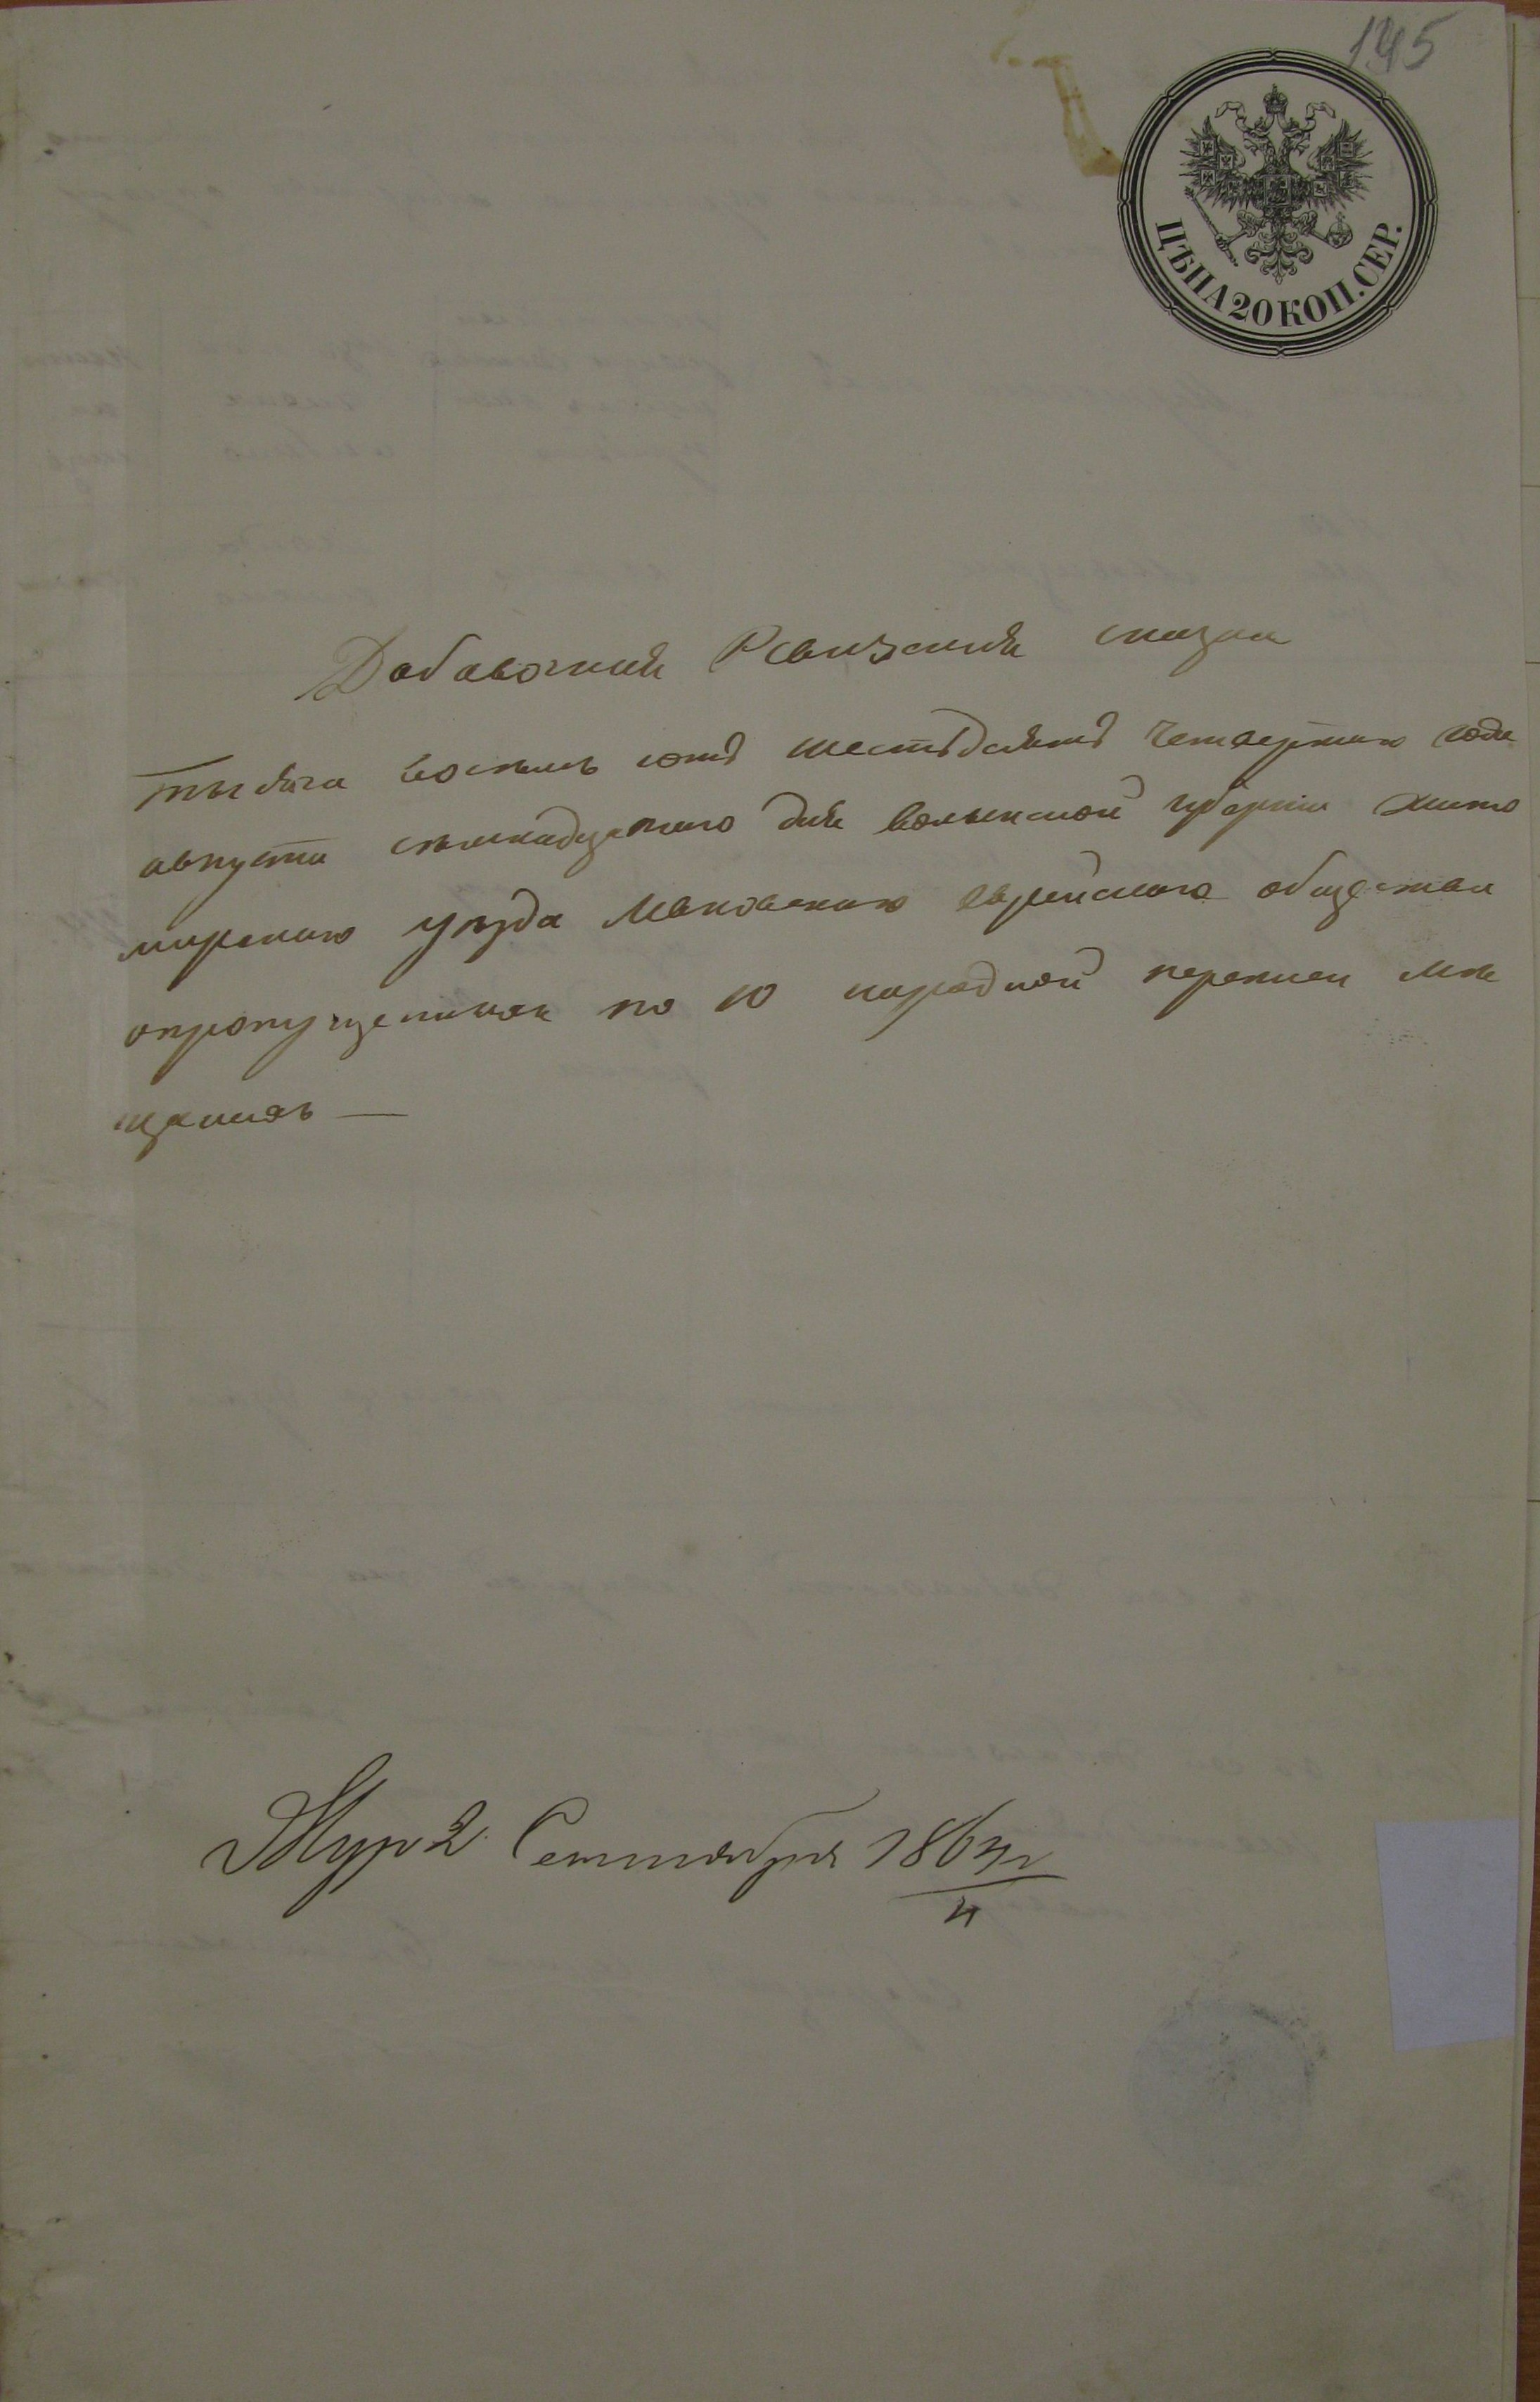 145
ЦѢНА 20 КОП. СЕР.
Добавочния Ревизския сказки
тысяча восемь сотъ шестьдсятъ четвертаго года
августа семнадцатого дня волынской губернии жито
мирскаго уезда Ивковскаго еврейскаго общества
опропущенных по 10 народной переписи ме
щанах —
Жур 2 Сентября 1864 г